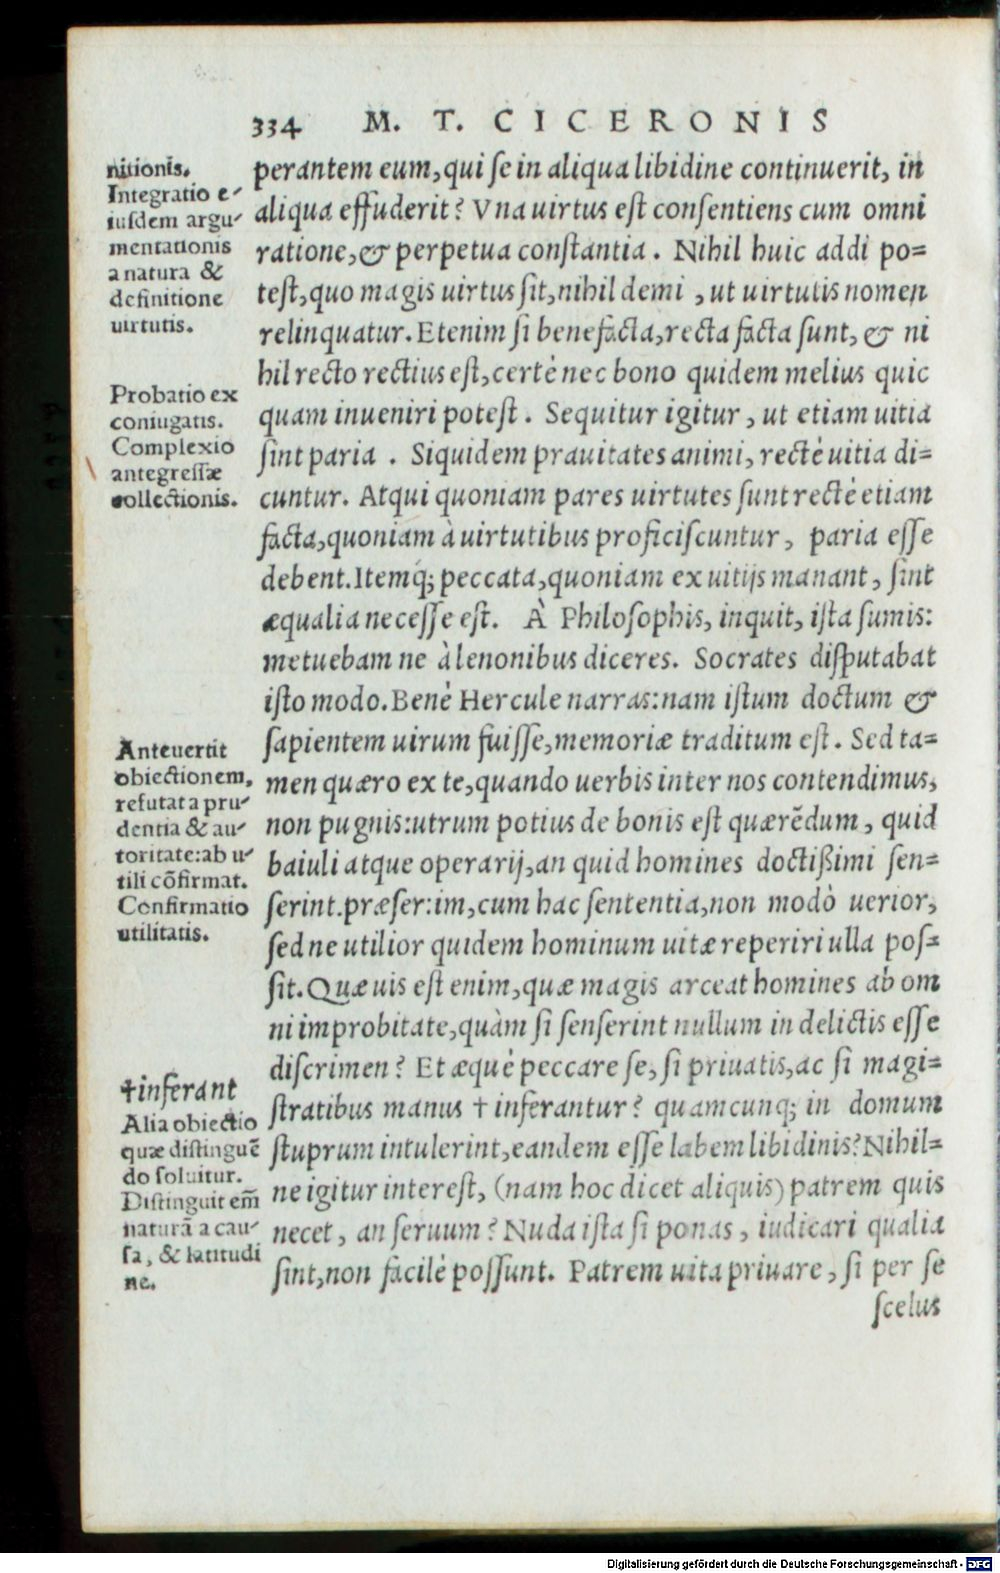 334 M. T. CICERONIS
nitionis.
Integratio e-
iusdem argu-
mentationis
a natura &
definitione
uirtutis.
Probatio ex
coniugatis.
Complexio
antegressæ
collectionis.
Anteuertit
obiectionem,
refutat a pru-
dentia & au-
toritate: ab u-
tili cõfirmat.
Confirmatio
utilitatis.
†inferant
Alia obiectio
quæ distinguẽ
do soluitur.
Distinguit em̃
naturã a cau-
sa, & latitudi
ne.
perantem eum, qui se in aliqua libidine continuerit, in
aliqua effuderit? Vna uirtus est consentiens cum omni
ratione, & perpetua constantia. Nihil huic addi po=
test, quo magis uirtus sit, nihil demi, ut uirtutis nomen
relinquatur. Etenim si benefacta, recta facta sunt, & ni
hil recto rectius est, certè nec bono quidem melius quic
quam inueniri potest. Sequitur igitur, ut etiam uitia
sint paria. Siquidem prauitates animi, rectè uitia di=
cuntur. Atqui quoniam pares uirtutes sunt rectè etiam
facta, quoniam à uirtutibus proficiscuntur, paria esse
debent. Itemq; peccata, quoniam ex uitijs manant, sint
æqualia necesse est. À Philosophis, inquit, ista sumis:
metuebam ne à lenonibus diceres. Socrates disputabat
isto modo. Benè Hercule narras: nam istum doctum &
sapientem uirum fuisse, memoriæ traditum est. Sed ta=
men quæro ex te, quando uerbis inter nos contendimus,
non pugnis: utrum potius de bonis est quærẽdum, quid
baiuli atque operarij, an quid homines doctißimi sen=
serint. præser:im, cum hac sententia, non modò uerior,
sed ne utilior quidem hominum uitæ reperiri ulla pos=
sit. Quæ uis est enim, quæ magis arceat homines ab om
ni improbitate, quàm si senserint nullum in delictis esse
discrimen? Et æquè peccare se, si priuatis, ac si magi=
stratibus manus † inferantur? quamcunq; in domum
stuprum intulerint, eandem esse labem libidinis? Nihil=
ne igitur interest, (nam hoc dicet aliquis) patrem quis
necet, an seruum? Nuda ista si ponas, iudicari qualia
sint, non facilè possunt. Patrem uita priuare, si per se
scelus
Digitalisierung gefördert durch die Deutsche Forschungsgemeinschaft - DFG